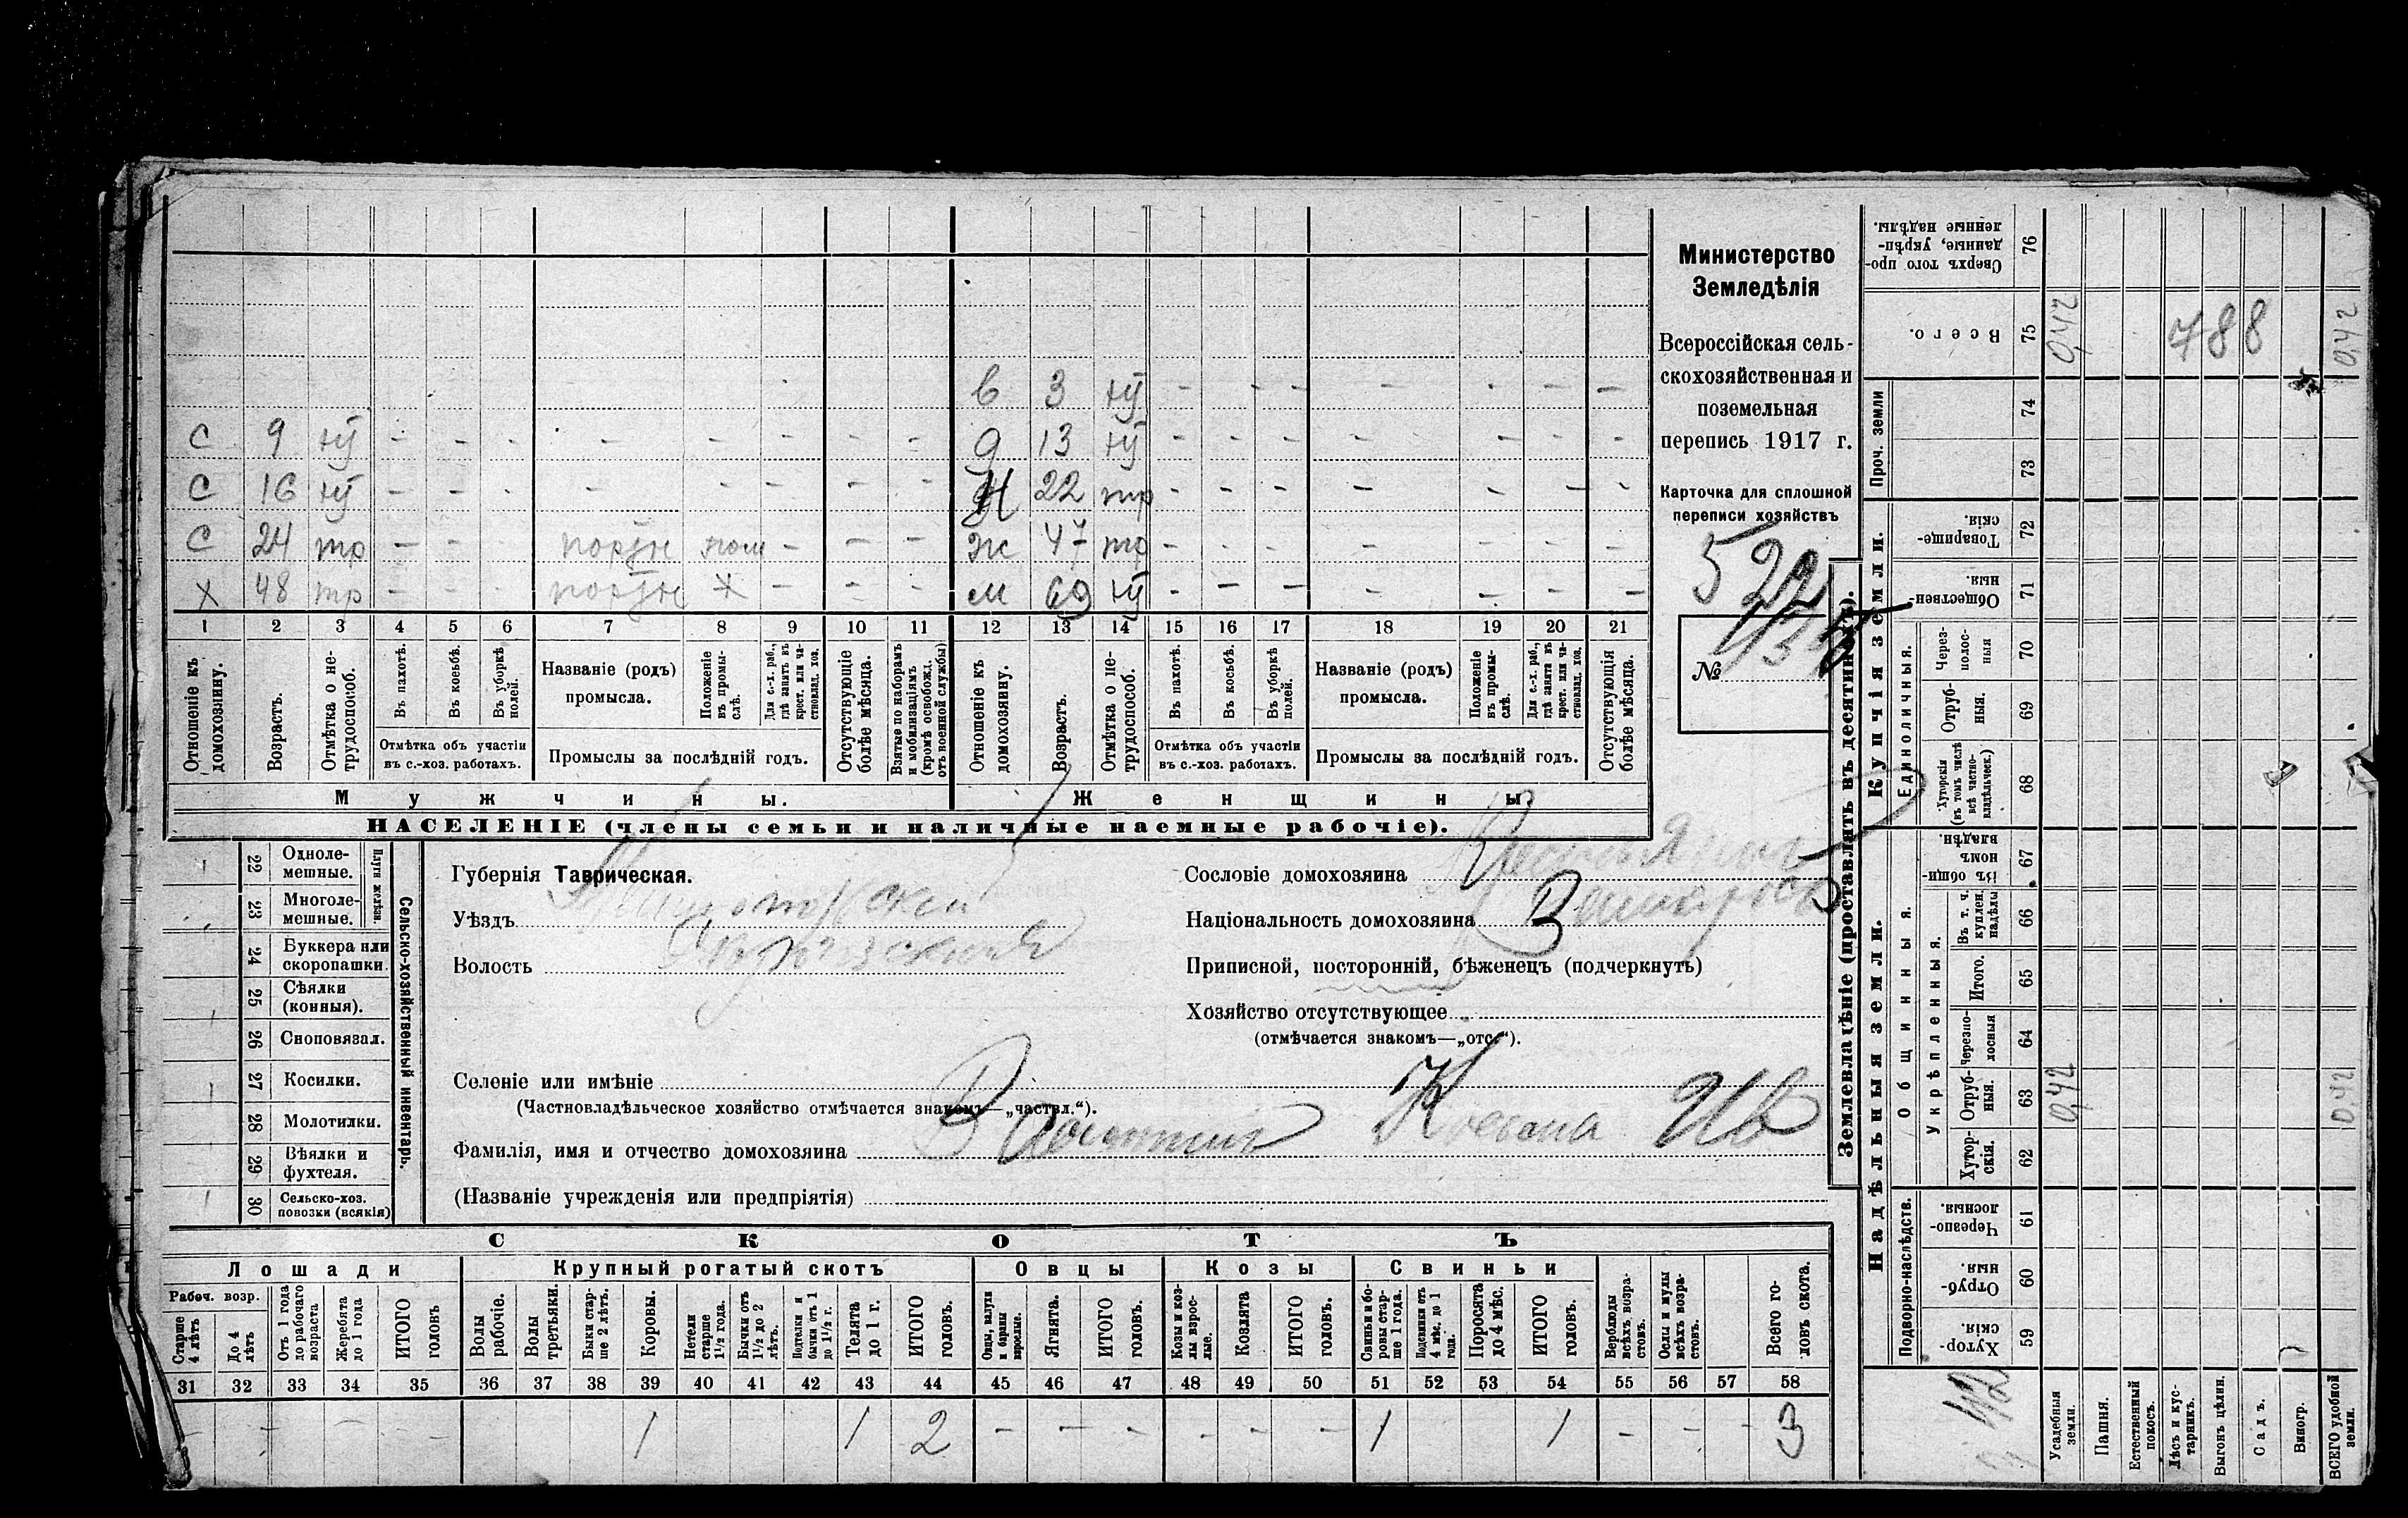 в 3 нт - - - - - - -
С 9 нт - - - - - - - - д 13 нт - - - - - - -
С 16 нт - - - - - - - - 22 тр - - - - - - -
С 24 тр - - - - - - ж 47 тр - - - - - - -
х 48 тр - - - х - - - м 69 нт - - - - - - -
1 2 3 4 5 6 7 8 9 10 11 12 13 14 15 16 17 18 19 20 21
Отношеніе къ домохозяину.
Возрастъ.
Отмѣтка о нетрудоспособ.
Въ пахотѣ.
Въ косьбѣ.
Въ уборкѣ полей.
Отмѣтка объ участіи
въ с.-хоз. работахъ.
Названіе (родъ)
промысла.
Положеніе въ промыслѣ.
Для с.-х. раб., гдѣ занятъ въ крест. или частновлад. хоз.
Промыслы за послѣдній годъ.
Отсутствующіе болѣе мѣсяца.
Взятые по наборамъ и мобилизаціямъ (кромѣ освобожд. отъ военной службы)
Отношеніе къ домохозяину.
Возрастъ.
Отмѣтка о нетрудоспособ.
Въ пахотѣ.
Въ косьбѣ.
Въ уборкѣ полей.
Отмѣтка объ участіи
въ с.-хоз. работахъ.
Названіе (родъ)
промысла.
Положеніе въ промыслѣ.
Для с.-х. раб., гдѣ занята въ крест. или частновлад. хоз.
Промыслы за послѣдній годъ.
Отсутствующія болѣе мѣсяца.
Мужчины. Женщины.
НАСЕЛЕНІЕ (члены семьи и наличные наемные рабочіе).
Министерство
Земледѣлія
Всероссійская сель-
скохозяйственная и
поземельная
перепись 1917 г.
Карточка для сплошной
переписи хозяйствъ
522
№
22 Одноле-
мешные.
23 Многоле-
мешные.
Плуги желѣзн.
24 Буккера или
скоропашки.
25 Сѣялки
(конныя).
26 Сноповязал.
27 Косилки.
28 Молотилки.
29 Вѣялки и
фухтеля.
30 Сельско-хоз.
повозки (всякія)
Сельско-хозяйственный инвентарь.
Губернія Таврическая.
Уѣздъ
Волость
Селеніе или имѣніе
(Частновладѣльческое хозяйство отмѣчается знакомъ—„частвл.“).
Фамилія, имя и отчество домохозяина Ив
(Названіе учрежденія или предпріятія)
Сословіе домохозяина
Національность домохозяина
Приписной, посторонній, бѣженецъ (подчеркнуть)
Хозяйство отсутствующее
(отмѣчается знакомъ—„отс.“).
СКОТЪ
Лошади Крупный рогатый скотъ Овцы Козы Свиньи
Рабоч. возр.
Старше 4 лѣтъ
До 4 лѣтъ
Отъ 1 года до рабочаго возраста
Жеребята до 1 года
ИТОГО головъ
Волы рабочіе.
Волы третьяки.
Быки старше 2 лѣтъ.
Коровы.
Нетели старше 1½ года.
Бычки отъ 1½ до 2 лѣтъ.
Подтелки и бычки отъ 1 до 1½ г.
Телята до 1 г.
ИТОГО головъ.
Овцы, валухи и бараны взрослые.
Ягнята.
ИТОГО головъ.
Козы и козлы взрослые.
Козлята
ИТОГО головъ.
Свиньи и боровы старше 1 года.
Подсвинки отъ 4 мѣс. до 1 года.
Поросята до 4 мѣс.
ИТОГО головъ.
Верблюды всѣхъ возрастовъ.
Ослы и мулы всѣхъ возрастовъ.
Всего головъ скота.
31 32 33 34 35 36 37 38 39 40 41 42 43 44 45 46 47 48 49 50 51 52 53 54 55 56 57 58
- - - 1 1 2 - - - - - - 1 1 - - - 3
Землевладѣніе (проставлять въ десятинахъ).
Надѣльныя земли. Купчія земли. Проч. земли
Подворно-наслѣдств.
Общинныя.
Укрѣпленныя.
Единоличныя.
59 Хуторскія
60 Отрубныя.
61 Черезполосныя.
62 Хуторскія.
63 Отрубныя.
64 Черезполосныя
65 Итого.
66 Въ т. ч. куплен. надѣлы
67 Въ общинномъ владѣн.
68 Хуторскія (въ томъ числѣ всѣ частновладѣльческ.)
69 Отрубныя.
70 Черезполосныя
71 Общественныя.
72 Товарищескія.
73
74
75 Всего.
76 Сверхъ того проданные, укрѣпленные надѣлы.
Усадебныя земли. 0,42 0,42
Пашня.
Естественный покосъ.
Лѣсъ и кустарникъ.
Выгонъ цѣлин.
Садъ.
Виногр.
ВСЕГО удобной земли. 0,42 0,42
788